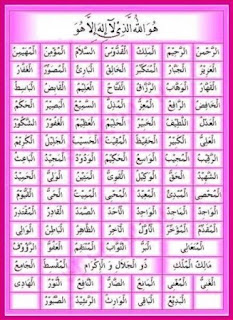 هُوَ اللهُ الَّذِي لَا إِلٰهَ إِلَّا هُوَ
الرَّحْمٰنُ الرَّحِيْمُ الْمَلِكُ الْقُدُّوْسُ السَّلَامُ الْمُؤْمِنُ الْمُهَيْمِنُ
الْعَزِيْزُ الْجَبَّارُ الْمُتَكَبِّرُ الْخَالِقُ الْبَارِئُ الْمُصَوِّرُ الْغَفَّارُ
الْقَهَّارُ الْوَهَّابُ الرَّزَّاقُ الْفَتَّاحُ الْعَلِيْمُ الْقَابِضُ الْبَاسِطُ
الْخَافِضُ الرَّافِعُ الْمُعِزُّ الْمُذِلُّ السَّمِيْعُ الْبَصِيْرُ الْحَكَمُ
الْعَدْلُ اللَّطِيْفُ الْخَبِيْرُ الْحَلِيْمُ الْعَظِيْمُ الْغَفُوْرُ الشَّكُوْرُ
الْعَلِيُّ الْكَبِيْرُ الْحَفِيْظُ الْمُقِيْتُ الْحَسِيْبُ الْجَلِيْلُ الْكَرِيْمُ
الرَّقِيْبُ الْمُجِيْبُ الْوَاسِعُ الْحَكِيْمُ الْوَدُوْدُ الْمَجِيْدُ الْبَاعِثُ
الشَّهِيْدُ الْحَقُّ الْوَكِيْلُ الْقَوِيُّ الْمَتِيْنُ الْوَلِيُّ الْحَمِيْدُ
الْمُحْصِي الْمُبْدِئُ الْمُعِيْدُ الْمُحْيِي الْمُمِيْتُ الْحَيُّ الْقَيُّوْمُ
الْوَاجِدُ الْمَاجِدُ الْوَاحِدُ الْاَحَدُ الصَّمَدُ الْقَادِرُ الْمُقْتَدِرُ
الْمُقَدِّمُ الْمُؤَخِّرُ الْاَوَّلُ الْاٰخِرُ الظَّاهِرُ الْبَاطِنُ الْوَالِي
الْمُتَعَالِي الْبَرُّ التَّوَّابُ الْمُنْتَقِمُ الْعَفُوُّ الرَّؤُوْفُ
مَالِكُ الْمُلْكِ ذُو الْجَلَالِ وَ الْاِكْرَامِ الْمُقْسِطُ الْجَامِعُ
الْغَنِيُّ الْمُغْنِي الْمَانِعُ الضَّارُّ النَّافِعُ النُّوْرُ الْهَادِي
الْبَدِيْعُ الْبَاقِي الْوَارِثُ الرَّشِيْدُ الصَّبُوْرُ